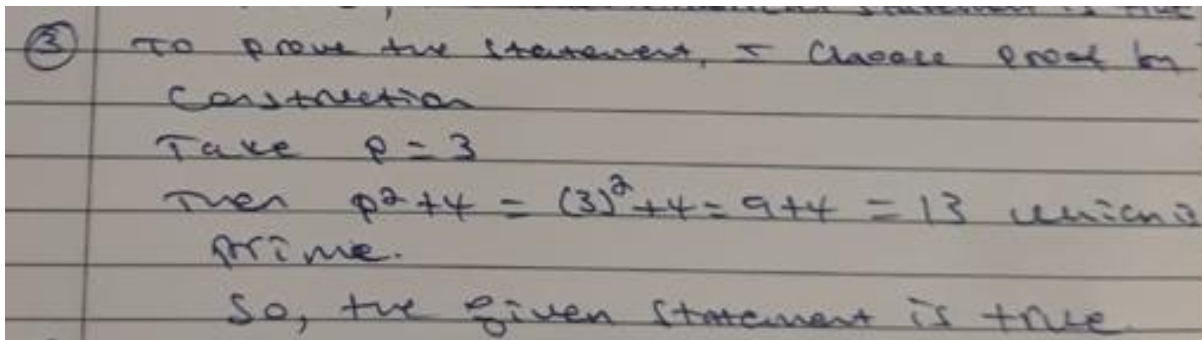 statement is true
③ To prove the statement, I choose proof by
construction
Take p = 3
Then p²+4 = (3)²+4 = 9+4 = 13 which is
prime.
So, the given statement is true.